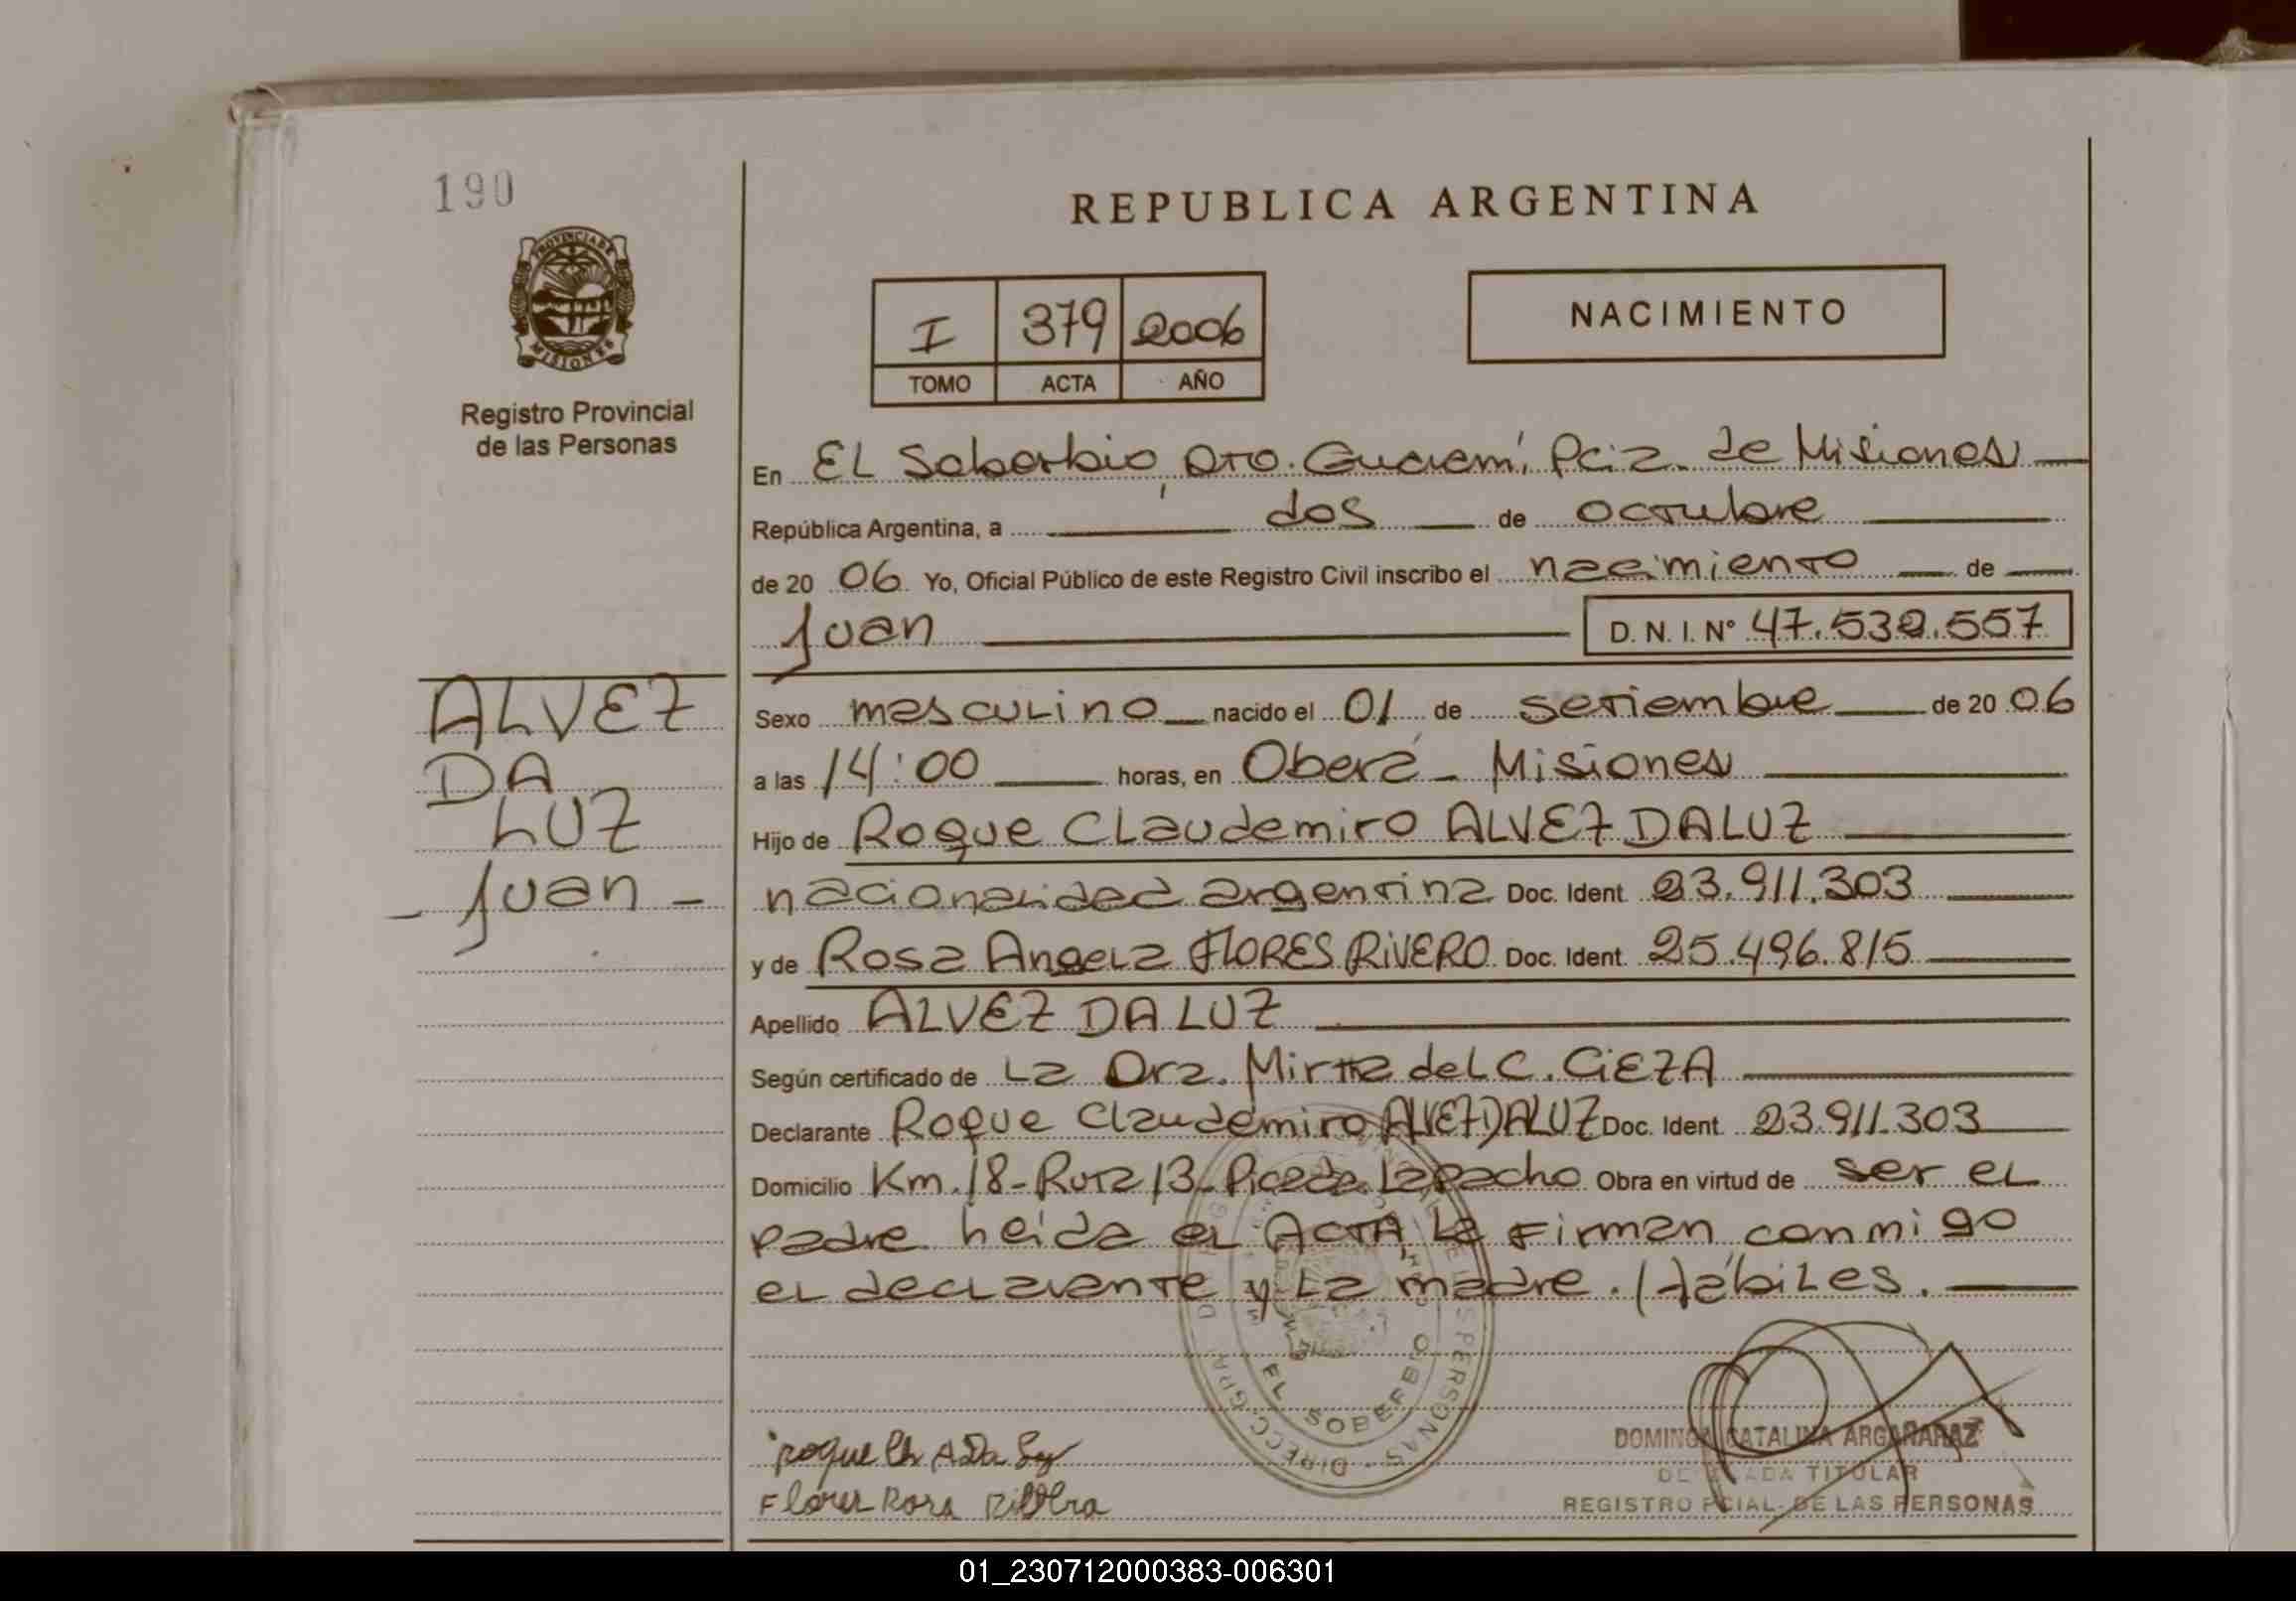 190
PROVINCIA DE
MISIONES
Registro Provincial
de las Personas
REPUBLICA ARGENTINA
I 379 2006
TOMO ACTA AÑO
NACIMIENTO
En EL Soberbio, Dto. Guaraní, Pcia. de Misiones
República Argentina, a dos de octubre
de 20 06 Yo, Oficial Público de este Registro Civil inscribo el nacimiento de
Juan D. N. I. Nº 47.532.557
ALVEZ
DA
LUZ
- Juan -
Sexo masculino nacido el 01 de setiembre de 20 06
a las 14:00 horas, en Oberá - Misiones
Hijo de Roque Claudemiro ALVEZ DA LUZ
nacionalidad argentina Doc. Ident. 23.911.303
y de Rosa Angela FLORES RIVERO Doc. Ident. 25.496.815
Apellido ALVEZ DA LUZ
Según certificado de La Dra. Mirtha del C. CIEZA
Declarante Roque Claudemiro ALVEZ DA LUZ Doc. Ident. 23.911.303
Domicilio Km. 18 - Ruta 13 - Picada Lapacho Obra en virtud de ser el
padre Leída el ACTA, la firman conmigo
el declarante y la madre. / Hábiles.
EL SOBERBIO
Roque
Flores Rosa
DOMINGA CATALINA ARGAÑARAZ
DELEGADA TITULAR
REGISTRO PCIAL. DE LAS PERSONAS
01_230712000383-006301